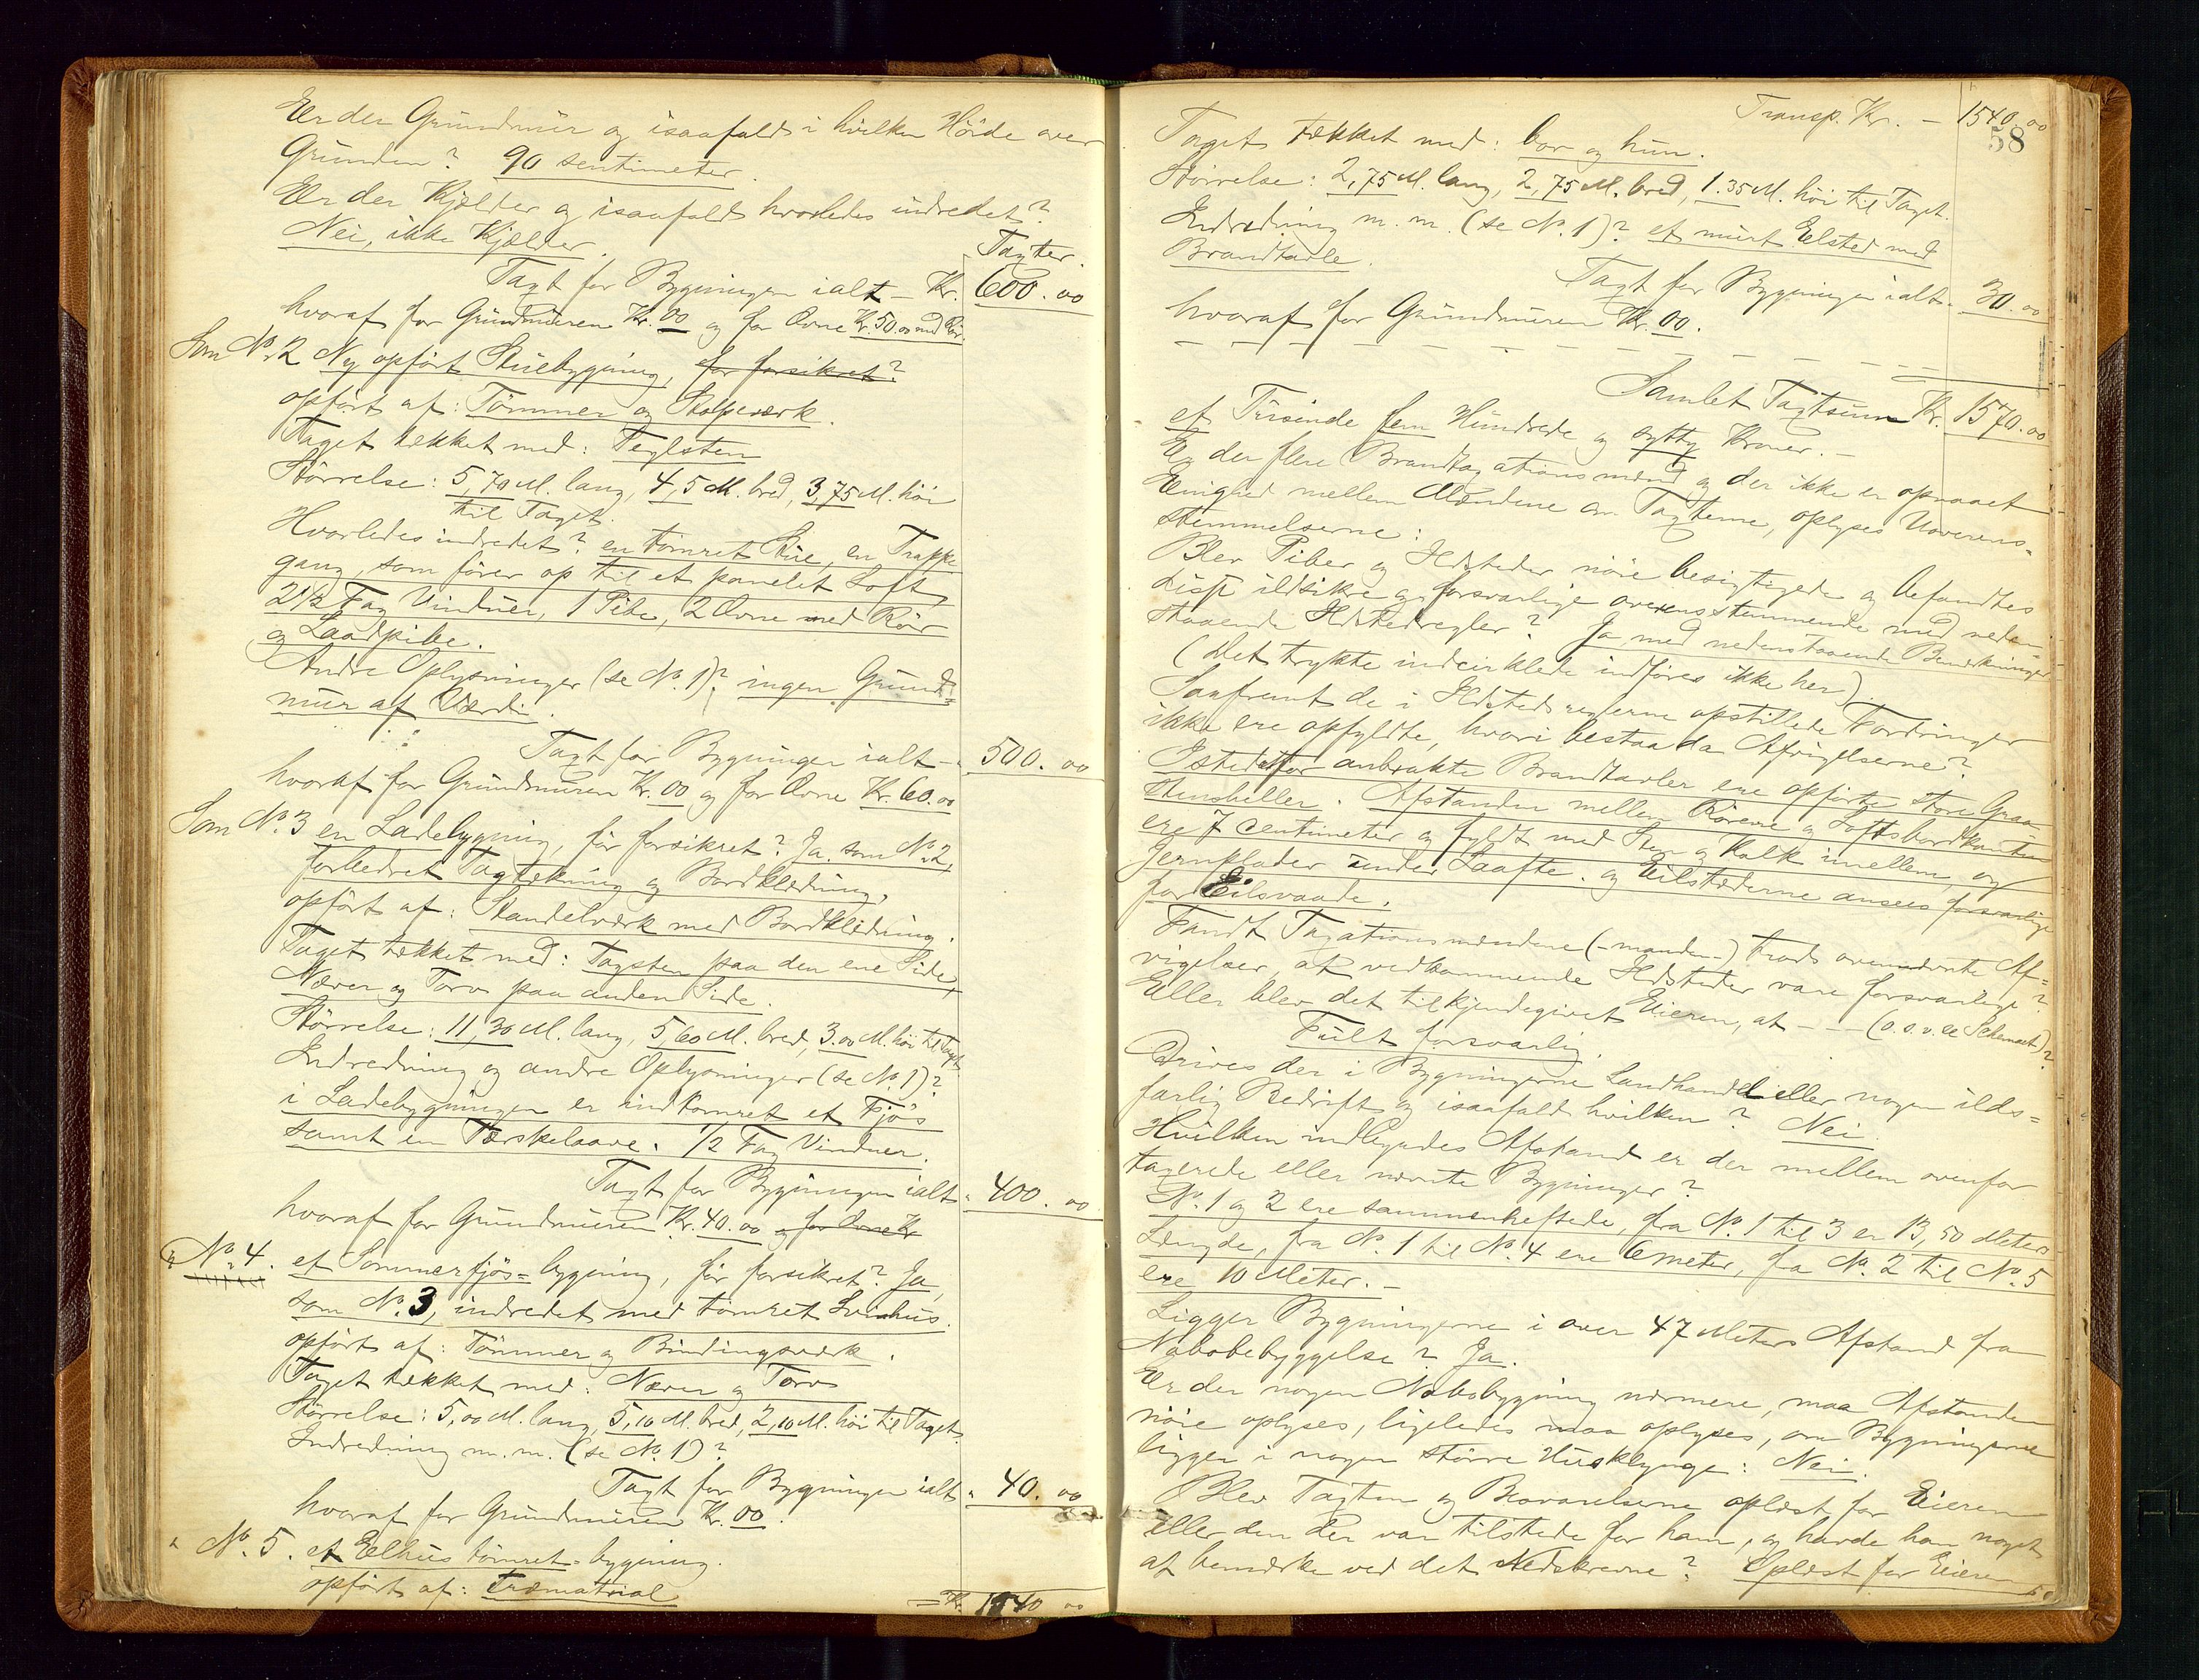 Er der Grundmur og isaafald i hvilken Höide over
Grunden? 90 sentimeter.
Er der Kjælder og isaafald hvorledes indredet?
Nei, ikke Kjælder.
Taxter.
Taxt for Bygningen ialt – Kr. 600.00
hvoraf for Grundmuren Kr. 00 og for Ovne Kr. 50.00 med Rör.
Som No. 2 Ny opfört Stuebygning, för forsikret?
opfört af: Tömmer og Stolpeværk.
Taget tækket med: Teglsten
Störrelse: 5,70 M. lang, 4,5 M. bred, 3,75 M. höi
til Taget.
Hvorledes indredet? en tömret Stue, en Trappe
gang, som förer op til et panelet Loft,
2 1/2 Fag Vinduer, 1 Pibe, 2 Ovne med Rör
og Laadpibe.
Andre Oplysninger (se No. 1)? ingen Grund=
mur af Værdi.
Taxt for Bygningen ialt – " 500.00
hvoraf for Grundmuren Kr. 00 og for Ovne Kr. 60.00
Som No. 3 en Ladebygning, för forsikret? Ja som No. 2,
forbedret Tagtækning og Bordklædning,
opfört af: Standelværk med Bordklædning.
Taget tækket med: Tagsten paa den ene Side,
Næver og Torv paa anden Side.
Störrelse: 11,30 M. lang, 5,60 M. bred, 3.00 M. höi til Taget
Indredning og andre Oplysninger (se No. 1)?
i Ladebygningen er indtömret et Fjös
samt en Tærskelaave. 1/2 Fag Vinduer.
Taxt for Bygningen ialt " 400.00
hvoraf for Grundmuren Kr. 40.00 og for Ovne Kr
" No. 4. et Sommerfjös=bygning, för forsikret? Ja,
som No. 3, indredet med tömret Svinhus.
opfört af: Tömmer og Bindingsværk.
Taget tækket med: Næver og Torv
Störrelse: 5,00 M. lang, 5,10 M. bred, 2,10 M. höi til Taget.
Indredning m.m. (se No. 1)?
Taxt for Bygningen ialt " 40.00
hvoraf for Grundmuren Kr. 00.
" No. 5. et Eelhus tömret=bygning.
opfört af: Træmatrial
= Kr. 1540 00
Transp. Kr. – 1540.00
58
Taget tækket med: bor og hun.
Störrelse: 2,75 M. lang, 2,75 M. bred, 1.35 M. höi til Taget.
Indredning m.m. (se No. 1)? et murt Elsted med
Brandtavle.
Taxt for Bygningen ialt " 30.00
hvoraf for Grundmuren Kr. 00.
Samlet Taxtsum Kr. 1570.00
et Tusinde fem Hundrede og sytty Kroner. –
Er der flere Brandtaxationsmænd og der ikke er opnaaet
Enighed mellem Mændene om Taxterne, oplyses Uoverens=
stemmelserne:
Blev Piber og Ildsteder nöie besigtigede og befandtes
disse ildsikre og forsvarlige overensstemmende med neden=
staaende Ildstedregler? Ja, med nedenstaaende Bemærkninger
(Det trykte indcirklede indföres ikke her).
Saafremt de i Ildstedsreglerne opstillede Fordringer
ikke ere opfyldte, hvori bestaa da Afvigelserne?
Istedetfor anbrakte Brandtavler ere opförte store Graa=
stensheller. Afstanden mellem Rörene og Loftsbordkanten
ere 7 centimeter og fyldt med Sten og Kalk imellem, og
Jernplader under Laafte. og Eilstæderne ansees forsvarlige
for Eilsvaade.
Fandt Taxationsmændene (-manden-) trods ovennævnte Af=
vigelser, at vedkommende Ildsteder vare forsvarlige?
Eller blev det tilkjendegivet Eieren, at – – – (o.s.v. se Schemaet)?
Fult forsvarlig.
Drives der i Bygningerne Landhandel eller nogen ilds=
farlig Bedrift og isaafald hvilken? Nei.
Hvilken indbyrdes Afstand er der mellem ovenfor
taxerede eller nævnte Bygninger?
No. 1 og 2 ere sammenheftede, fra No. 1 til 3 er 13,50 Meters
Længde, fra No. 1 til No. 4 ere 6 meter, fra No. 2 til No. 5
ere 10 Meter. –
Ligger Bygningerne i over 47 Meters Afstand fra
Nabobebyggelse? Ja.
Er der nogen Nabobygning nærmere, maa Afstanden
nöie oplyses, ligeledes maa oplyses, om Bygningerne
ligger i nogen större Husklynge: Nei.
Blev Taxten og Besvarelserne oplæst for Eieren
eller den der var tilstede for ham, og havde han noget
at bemærke ved det Nedskrevne? Oplæst for Eieren